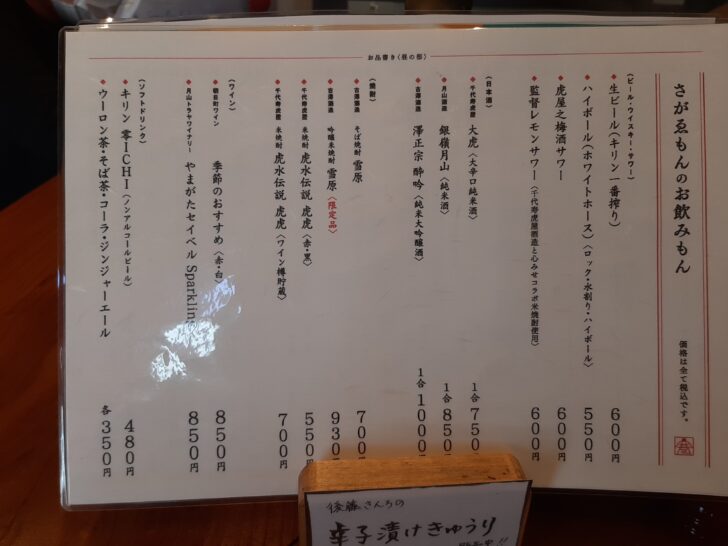 お品書き〈昼の部〉
さがゑもんのお飲みもん
価格は全て税込です。
〈ビール・ウイスキー・サワー〉
◆生ビール〈キリン一番搾り〉 600円
◆ハイボール〈ホワイトホース〉〈ロック・水割り・ハイボール〉 550円
◆虎屋之梅酒サワー 600円
◆監督レモンサワー〈千代寿虎屋酒造と心みせコラボ米焼酎使用〉 600円
〈日本酒〉
◆千代寿虎屋 大虎〈大辛口純米酒〉 1合 750円
◆月山酒造 銀嶺月山〈純米酒〉 1合 850円
◆古澤酒造 澤正宗 酔吟〈純米大吟醸酒〉 1合 1000円
〈焼酎〉
◆古澤酒造 そば焼酎 雪原 700
◆古澤酒造 吟醸米焼酎 雪原〈限定品〉 930円
◆千代寿虎屋 米焼酎 虎水伝説 虎虎〈赤・黒〉 550円
◆千代寿虎屋 米焼酎 虎水伝説 虎虎〈ワイン樽貯蔵〉 700円
〈ワイン〉
◆朝日町ワイン 季節のおすすめ〈赤・白〉 850円
◆月山トラヤワイナリー やまがたセイベル Sparkling 850円
〈ソフトドリンク〉
◆キリン 零ICHI〈ノンアルコールビール〉 480円
◆ウーロン茶・そば茶・コーラ・ジンジャーエール 各350円
後藤さんちの
辛子漬けきゅうり